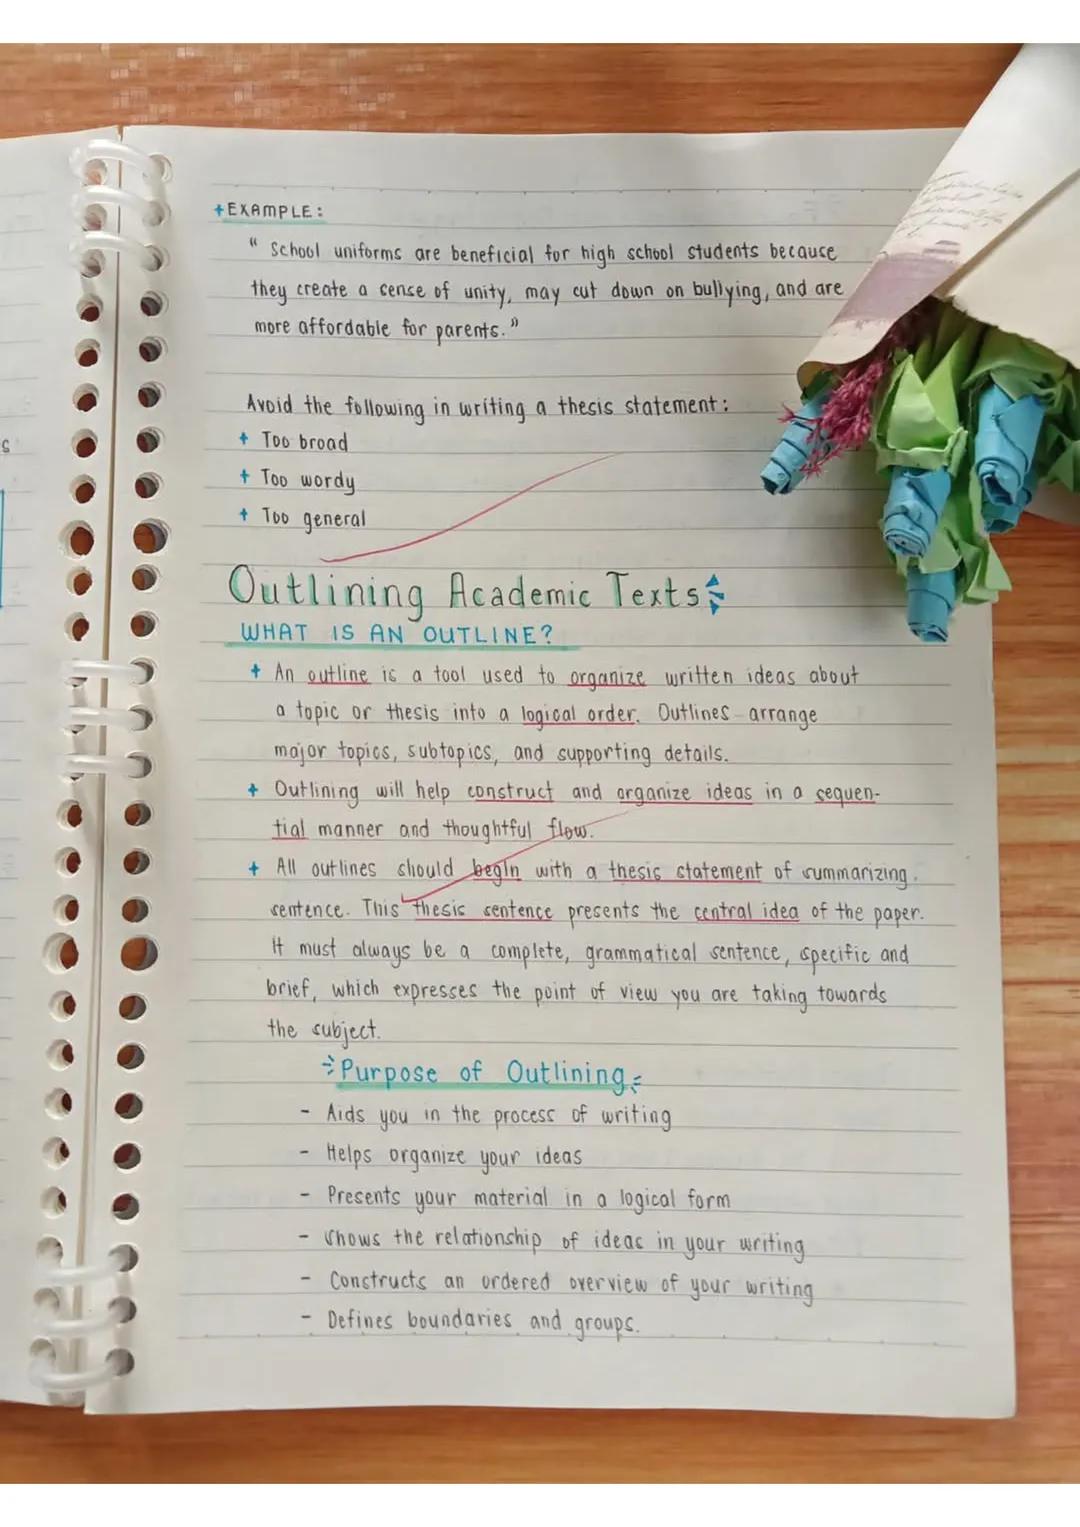 +EXAMPLE:
" School uniforms are beneficial for high school students because
they create a sense of unity, may cut down on bullying, and are
more affordable for parents."
Avoid the following in writing a thesis statement:
+ Too broad
+ Too wordy
+ Too general
Outlining Academic Texts
WHAT IS AN OUTLINE?
+ An outline is a tool used to organize written ideas about
a topic or thesis into a logical order. Outlines arrange
major topics, subtopics, and supporting details.
+ Outlining will help construct and organize ideas in a sequen-
tial manner and thoughtful flow.
+ All outlines should begin with a thesis statement of summarizing
sentence. This thesis sentence presents the central idea of the paper.
It must always be a complete, grammatical sentence, specific and
brief, which expresses the point of view you are taking towards
the subject.
Purpose of Outlining
- Aids you in the process of writing
- Helps organize your ideas
- Presents your material in a logical form
- Shows the relationship of ideas in your writing
- Constructs an ordered overview of your writing
- Defines boundaries and groups.